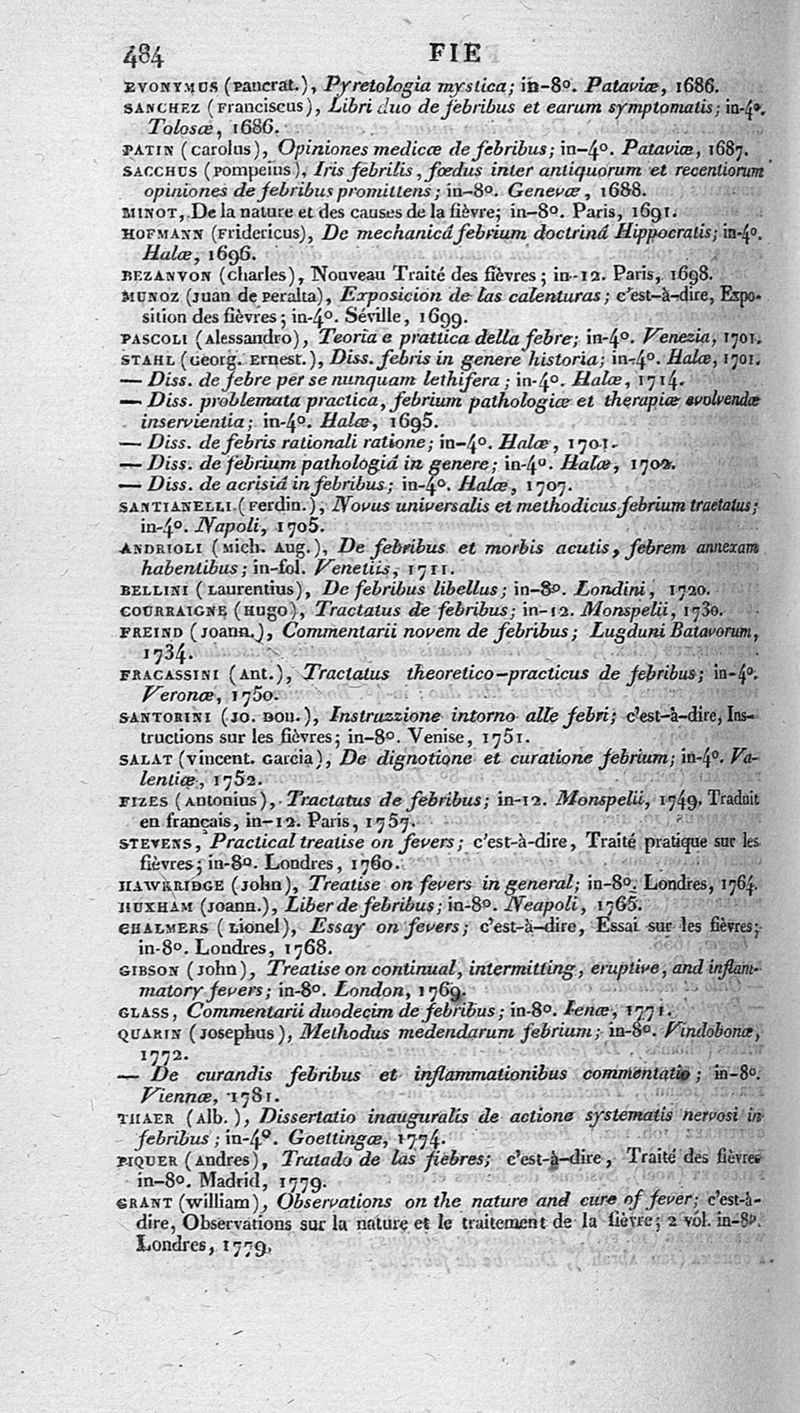 484 FIE
EVONYMUS (Pancrat.), Pyretologia mystica; in-8º. Pataviæ, 1686.
SANCHEZ (Franciscus), Libri duo de febribus et earum symptomatis; in-4º.
Tolosæ, 1686.
PATIN (Carolus), Opiniones medicæ de febribus; in-4º. Pataviæ, 1687.
SACCHUS (Pompeius), Iris febrilis, fœdus inter antiquorum et recentiorum
opiniones de febribus promittens; in-8º. Genevæ, 1688.
MINOT, De la nature et des causes de la fièvre; in-8º. Paris, 1691.
HOFMANN (Fridericus), De mechanicâ febrium doctrinâ Hippocratis; in-4º.
Halæ, 1696.
BEZANVON (Charles), Nouveau Traité des fièvres; in-12. Paris, 1698.
MUNOZ (Juan de Peralta), Exposicion de las calenturas; c'est-à-dire, Expo-
sition des fièvres; in-4º. Séville, 1699.
PASCOLI (Alessandro), Teoria e prattica della febre; in-4º. Venezia, 1701.
STAHL (Georg. Ernest.), Diss. febris in genere historia; in-4º. Halæ, 1701.
— Diss. de febre per se nunquam lethifera; in-4º. Halæ, 1714.
— Diss. problemata practica, febrium pathologiæ et therapiæ evolvendæ
inservientia; in-4º. Halæ, 1695.
— Diss. de febris rationali ratione; in-4º. Halæ, 1701.
— Diss. de febrium pathologiâ in genere; in-4º. Halæ, 1702.
— Diss. de acrisiâ in febribus; in-4º. Halæ, 1707.
SANTIANELLI (Ferdin.), Novus universalis et methodicus febrium tractatus;
in-4º. Napoli, 1705.
ANDRIOLI (Mich. Aug.), De febribus et morbis acutis, febrem annexam
habentibus; in-fol. Venetiis, 1711.
BELLINI (Laurentius), De febribus libellus; in-8º. Londini, 1720.
COURRAIGNE (Hugo), Tractatus de febribus; in-12. Monspelii, 1730.
FREIND (Joann.), Commentarii novem de febribus; Lugduni Batavorum,
1734.
FRACASSINI (Ant.), Tractatus theoretico-practicus de febribus; in-4º.
Veronæ, 1750.
SANTORINI (Jo. Dom.), Instruzzione intorno alle febri; c'est-à-dire, Ins-
tructions sur les fièvres; in-8º. Venise, 1751.
SALAT (Vincent. Garcia), De dignotione et curatione febrium; in-4º. Va-
lentiæ, 1752.
FIZES (Antonius), Tractatus de febribus; in-12. Monspelii, 1749. Traduit
en français, in-12. Paris, 1757.
STEVENS, Practical treatise on fevers; c'est-à-dire, Traité pratique sur les
fièvres; in-8º. Londres, 1760.
HAWKRIDGE (John), Treatise on fevers in general; in-8º. Londres, 1764.
HUXHAM (Joann.), Liber de febribus; in-8º. Neapoli, 1765.
CHALMERS (Lionel), Essay on fevers; c'est-à-dire, Essai sur les fièvres;
in-8º. Londres, 1768.
GIBSON (John), Treatise on continual, intermitting, eruptive, and inflam-
matory fevers; in-8º. London, 1769.
GLASS, Commentarii duodecim de febribus; in-8º. Ienæ, 1771.
QUARIN (Josephus), Methodus medendarum febrium; in-8º. Vindobonæ,
1772.
— De curandis febribus et inflammationibus commentatio; in-8º.
Viennæ, 1781.
THAER (Alb.), Dissertatio inauguralis de actione systematis nervosi in
febribus; in-4º. Goettingæ, 1774.
PIQUER (Andres), Tratado de las fiebres; c'est-à-dire, Traité des fièvres
in-8º. Madrid, 1779.
GRANT (William), Observations on the nature and cure of fever; c'est-à-
dire, Observations sur la nature et le traitement de la fièvre; 2 vol. in-8º.
Londres, 1779.